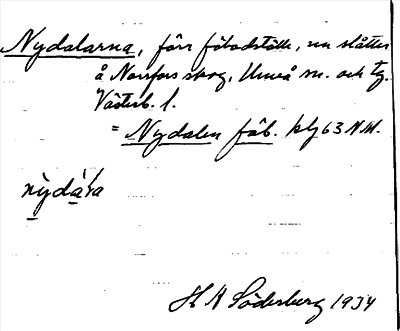 Nydalarna, förr fäbodställe, nu slåtter
å Norrfors skog, Umeå sn. och tg.
Västerb. l.
= Nydalen fäb. blg 63 N.M.
nỳdála
H A Söderberg 1934